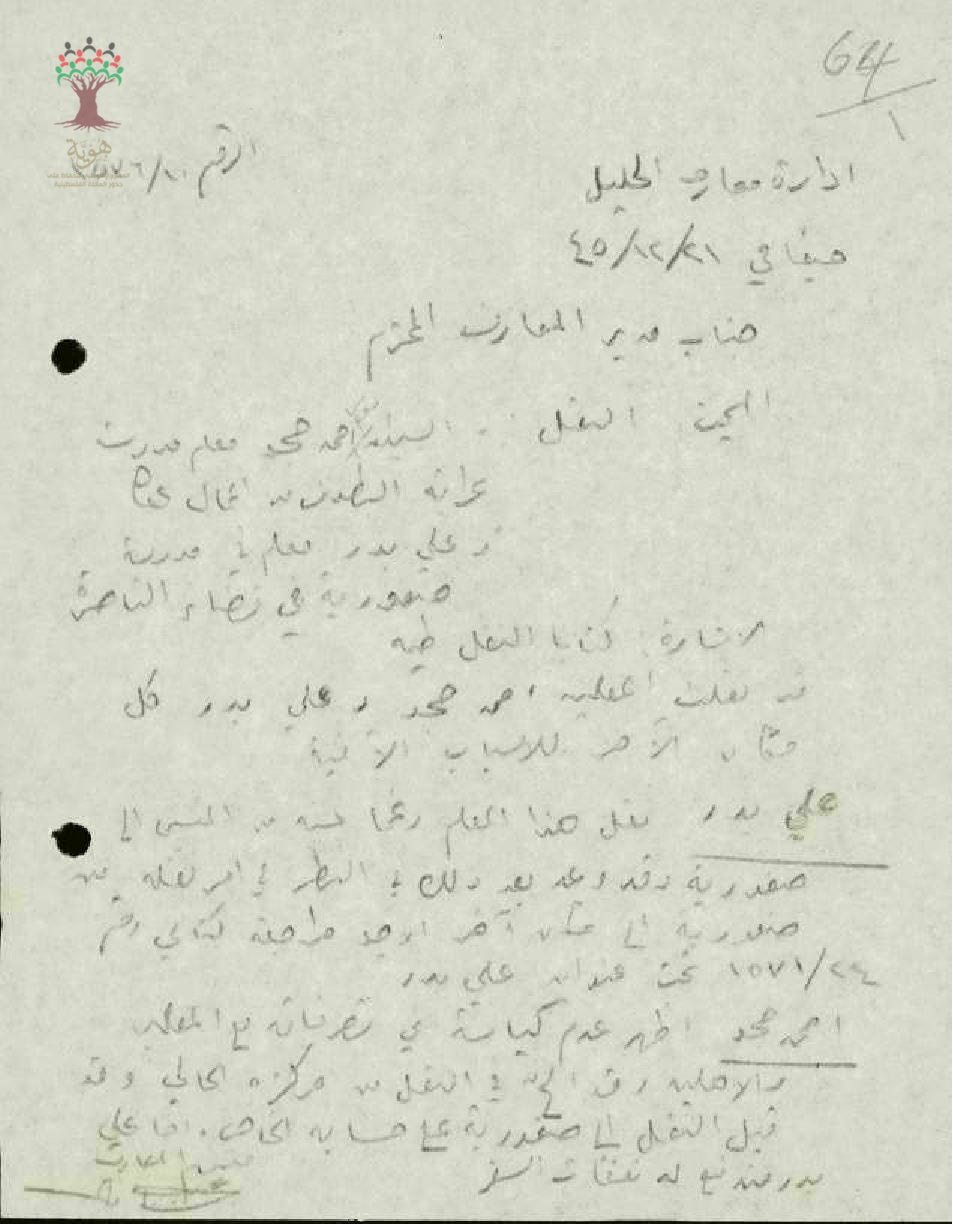 64
١
هوية
ادارة معارف الجليل
الرقم
حيفا في ٤٥/١٢/٢١
جناب مدير المعارف المحترم
النقل . احمد محمد معلم مدرسة
عرابة البطوف من اعمال عكا
و علي بدر معلم في مدرسة
صفورية في قضاء الناصرة
الاشارة: كتابا النقل طيه
قد نقلت المعلمين احمد محمد و علي بدر كل
مكان الآخر للاسباب الآتية
علي بدر نقل هذا المعلم رغما عنه من الى
صفورية وقد وعد بعد ذلك في النظر في امر نقله من
صفورية الى مكان آخر ارجو مراجعة كتابي رقم
١٥٧١/٢٤ تحت عنوان علي بدر
احمد محمد اظهر عدم كياسة في تصرفاته مع المعلمين
والاهلين وقد الح في النقل من مركزه الحالي وقد
قبل النقل الى صفورية على حسابه الخاص. اما علي
بدر فتدفع له نفقات السفر
مفتش المعارف